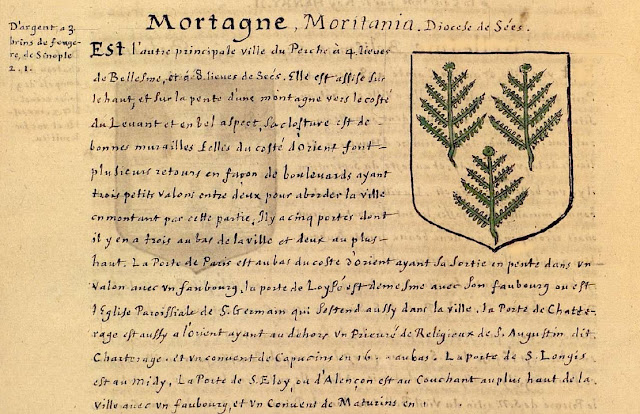 Mortagne, Moritania. Diocese de Sées.
D'argent, a 3
brins de feuge-
re, de Sinople
2. 1.
Est l'autre principale ville du Perche à 4. lieves
de Bellesme, et à 8. lieves de Seés. Elle est assise sur
le haut, et sur la pente d'une montagne vers le costé
du Levant et en bel aspect, sa closture est de
bonnes murailles Celles du costé d'Orient font
plusieurs retours en façon de boulevards ayant
trois petits valons entre deux pour aborder la ville
en montant par cette partie, Il y a cinq portes dont
il y en a trois au bas de la ville et deux au plus
haut. La Porte de Paris est au bas du costé d'Orient ayant sa sortie en pente dans vn
valon avec vn faubourg, la porte de Loysé est de mesme avec son faubourg ou est
l'Eglise Paroissiale de S. Germain qui s'estend aussy dans la ville, la Porte de Chatte-
rage est aussy a l'orient ayant au dehors vn Prieuré de Relegieux de S. Augustin dit
Charterage, et vn couvent de Capucins en 16 au bas. La porte de S. Longis
est au midy, La Porte de S. Eloy, ou d'Alençon est au Couchant au plus haut de la
ville avec vn faubourg, et vn Convent de Maturins en